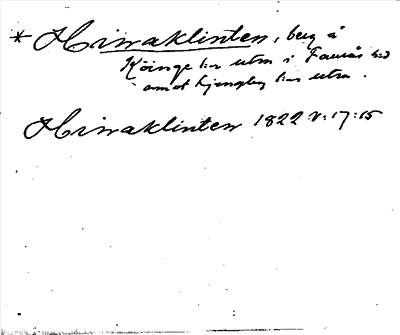 * Hinraklinten, berg å
Köinge hm utm i Faurås hd
emot Ljungby hm utm.
Hinraklinten 1822 v: 17:15